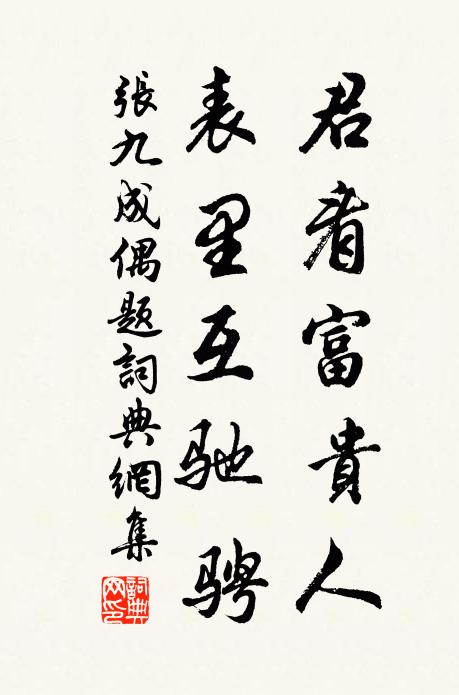 君看富貴人
表里互馳騁
張九成偶題詞典網集
詞典網印